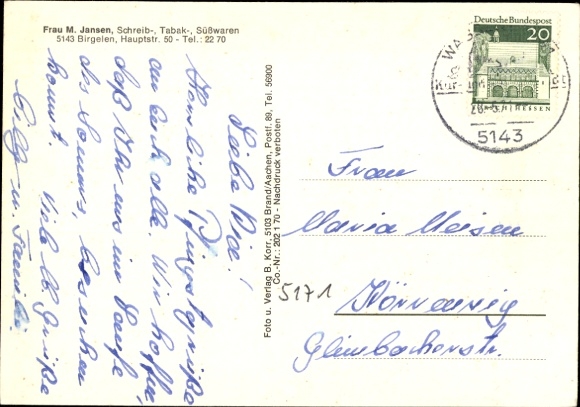 Frau M. Jansen, Schreib-, Tabak-, Süßwaren
5143 Birgelen, Hauptstr. 50 - Tel.: 22 70
Liebe Mia!
Herzliche Pfingstgrüße
an euch alle. Wir hoffen,
daß Ihr uns im Laufe
des Sommers besuchen
kommt. Viele lb. Grüße
Willy u. Familie
Foto u. Verlag B. Korr, 5103 Brand/Aachen, Postf. 89, Tel. 56900
Co.-Nr.: 202 1 70 - Nachdruck verboten
Deutsche Bundespost
20
LORSCH/HESSEN
5143
Frau
Maria Meisen
5171
Körrenzig
Glimbacherstr.